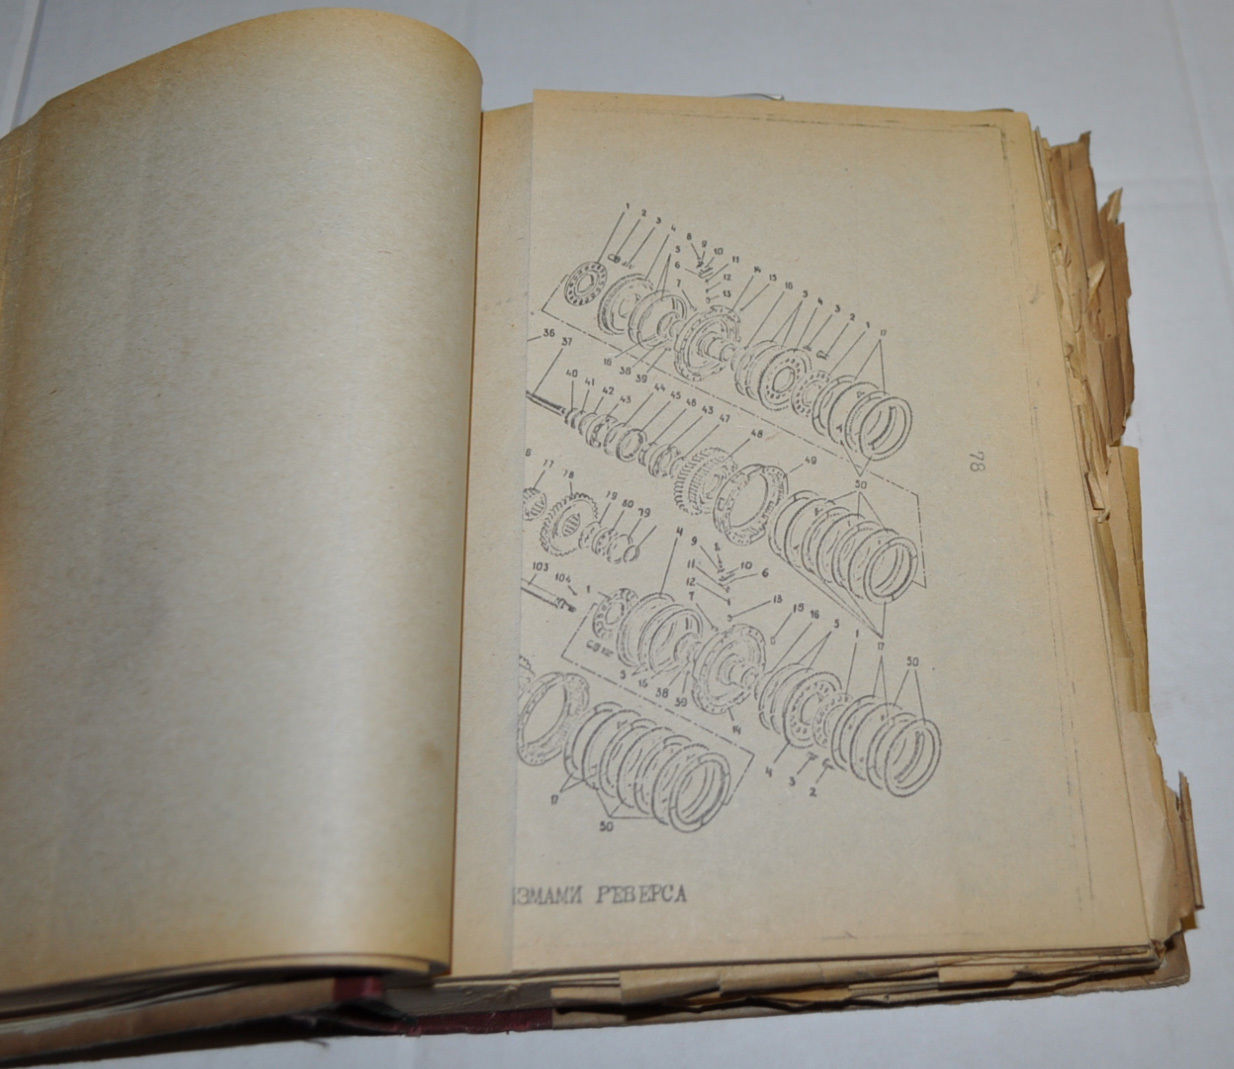 1 2 3 4 8
5 9 10
6 11
7 12 14 15 16 5 4 3 2 1 17
13
36
37 16 38 39
40 41 42 43 44 45 46 43 47
48
49
78
50
6 77 78
79 80 79
4 9 8
11 10 6
12
7 13 15 16 5 1 17 50
103 104 1
17
5 16 38 39
14
4 3 2
17
50
ИЗМАМИ РЕВЕРСА